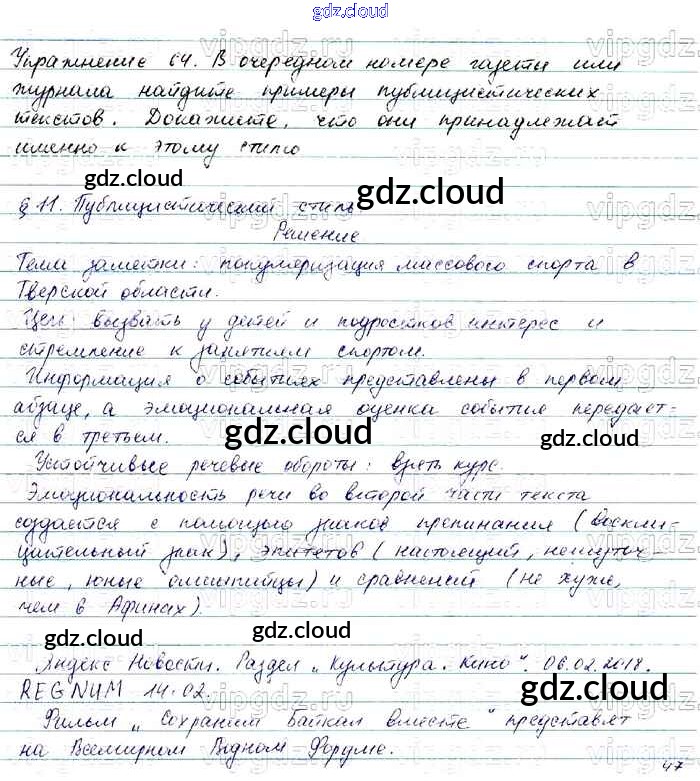 gdz.cloud
Упражнение 64. В очередном номере газеты или
журнала найдите примеры публицистических
текстов. Докажите, что они принадлежат
именно к этому стилю
gdz.cloud
gdz.cloud
§ 11. Публицистический стиль
Решение
Тема заметки: популяризация массового спорта в
Тверской области.
Цель вызвать у детей и подростков интерес и
стремление к занятиям спортом.
Информация о событиях представлены в первом
абзаце, а эмоциональная оценка события передаёт-
ся в третьем.
gdz.cloud
gdz.cloud
Устойчивые речевые обороты: взять курс.
Эмоциональность речи во второй части текста
создаётся с помощью знаков препинания (воскли-
цательный знак), эпитетов (настоящий, нешуточ-
ные, юные олимпийцы) и сравнений (не хуже,
чем в Афинах).
gdz.cloud
gdz.cloud
Яндекс Новости. Раздел „Культура. Кино“. 06.02.2018.
REGNUM 14.02.
gdz.cloud
Фильм „Сохраним Байкал вместе“ представят
на Всемирном Водном Форуме.
47